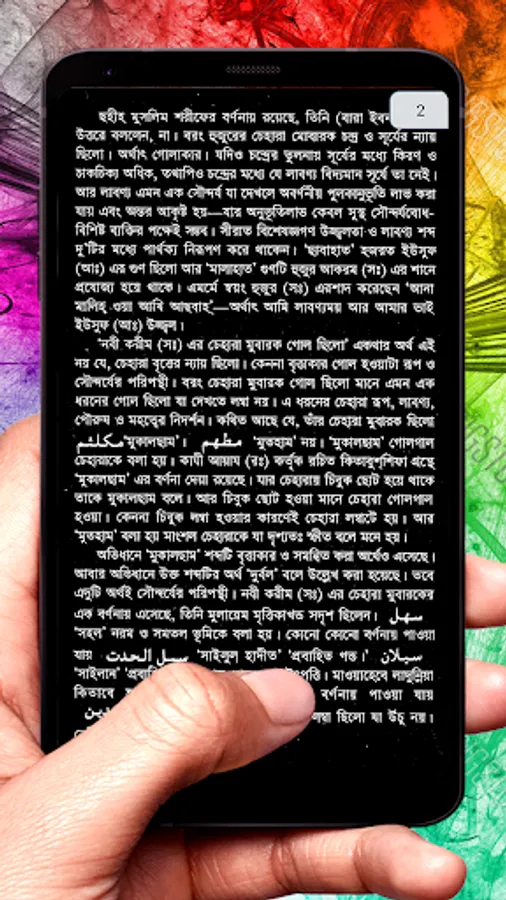 2
ছহীহ মুসলিম শরীফের বর্ণনায় রয়েছে, তিনি (বারা ইবন
উত্তরে বললেন, না। বরং হুজুরের চেহারা মোবারক চন্দ্র ও সূর্যের ন্যায়
ছিলো। অর্থাৎ গোলাকার। যদিও চন্দ্রের তুলনায় সূর্যের মধ্যে কিরণ ও
চাকচিক্য অধিক, তথাপিও চন্দ্রের মধ্যে যে লাবণ্য বিদ্যমান সূর্যে তা নেই।
আর লাবণ্য এমন এক সৌন্দর্য যা দেখলে অবর্ণনীয় পুলকানুভূতি লাভ করা
যায় এবং অন্তর আকৃষ্ট হয়—যার অনুভূতিলাভ কেবল সুস্থ সৌন্দর্যবোধ-
বিশিষ্ট ব্যক্তির পক্ষেই সম্ভব। সীরাত বিশেষজ্ঞগণ উজ্জ্বলতা ও লাবণ্য শব্দ
দু'টির মধ্যে পার্থক্য নিরূপণ করে থাকেন। 'ছাবাহাত' হজরত ইউসুফ
(আঃ) এর গুণ ছিলো আর 'মালাহাত' গুণটি হুজুর আকরম (সঃ) এর শানে
প্রযোজ্য হয়ে থাকে। এমর্মে স্বয়ং হুজুর (সঃ) এরশাদ করেছেন 'আনা
মালিহ ওয়া আখি আছবাহ'—অর্থাৎ আমি লাবণ্যময় আর আমার ভাই
ইউসুফ (আঃ) উজ্জ্বল।
'নবী করীম (সঃ) এর চেহারা মুবারক গোল ছিলো' একথার অর্থ এই
নয় যে, চেহারা বৃত্তের ন্যায় ছিলো। কেননা বৃত্তাকার গোল হওয়াটা রূপ ও
সৌন্দর্যের পরিপন্থী। বরং চেহারা মুবারক গোল ছিলো মানে এমন এক
ধরনের গোল ছিলো যা দেখতে লম্বা নয়। এ ধরনের চেহারা রূপ, লাবণ্য,
পৌরুষ ও মহত্বের নিদর্শন। কথিত আছে যে, তাঁর চেহারা মুবারক ছিলো
مكلثم 'মুকালছাম'। مطهم 'মুতহাম' নয়। 'মুকালছাম' গোলগাল
চেহারাকে বলা হয়। কাযী আয়ায (রঃ) কর্তৃক রচিত কিতাবুশ্শিফা গ্রন্থে
'মুকালছাম' এর বর্ণনা দেয়া রয়েছে। যার চেহারায় চিবুক ছোট হয়ে থাকে
তাকে মুকালছাম বলে। আর চিবুক ছোট হওয়া মানে চেহারা গোলগাল
হওয়া। কেননা চিবুক লম্বা হওয়ার কারণেই চেহারা লম্বাটে হয়। আর
'মুতহাম' বলা হয় মাংশল চেহারাকে যা দৃশ্যতঃ স্ফীত বলে মনে হয়।
অভিধানে 'মুকালছাম' শব্দটি বৃত্তাকার ও সমন্বিত করা অর্থেও এসেছে।
আবার অভিধানে উক্ত শব্দটির অর্থ 'দুর্বল' বলে উল্লেখ করা হয়েছে। তবে
এদুটি অর্থই সৌন্দর্যের পরিপন্থী। নবী করীম (সঃ) এর চেহারা মুবারকের
এক বর্ণনায় এসেছে, তিনি মুলায়েম মৃত্তিকাখন্ড সদৃশ ছিলেন। سهل
'সহল' নরম ও সমতল ভূমিকে বলা হয়। কোনো কোনো বর্ণনায় পাওয়া
যায় سيل الحدت 'সাইলুল হাদীত' 'প্রবাহিত গন্ড।' سيلان
'সাইলান' 'প্রবাহি ৎপত্তি। মাওয়াহেবে লাদুন্নিয়া
কিতাবে বর্ণনায় পাওয়া যায়
ছিলো যা উঁচু নয়।